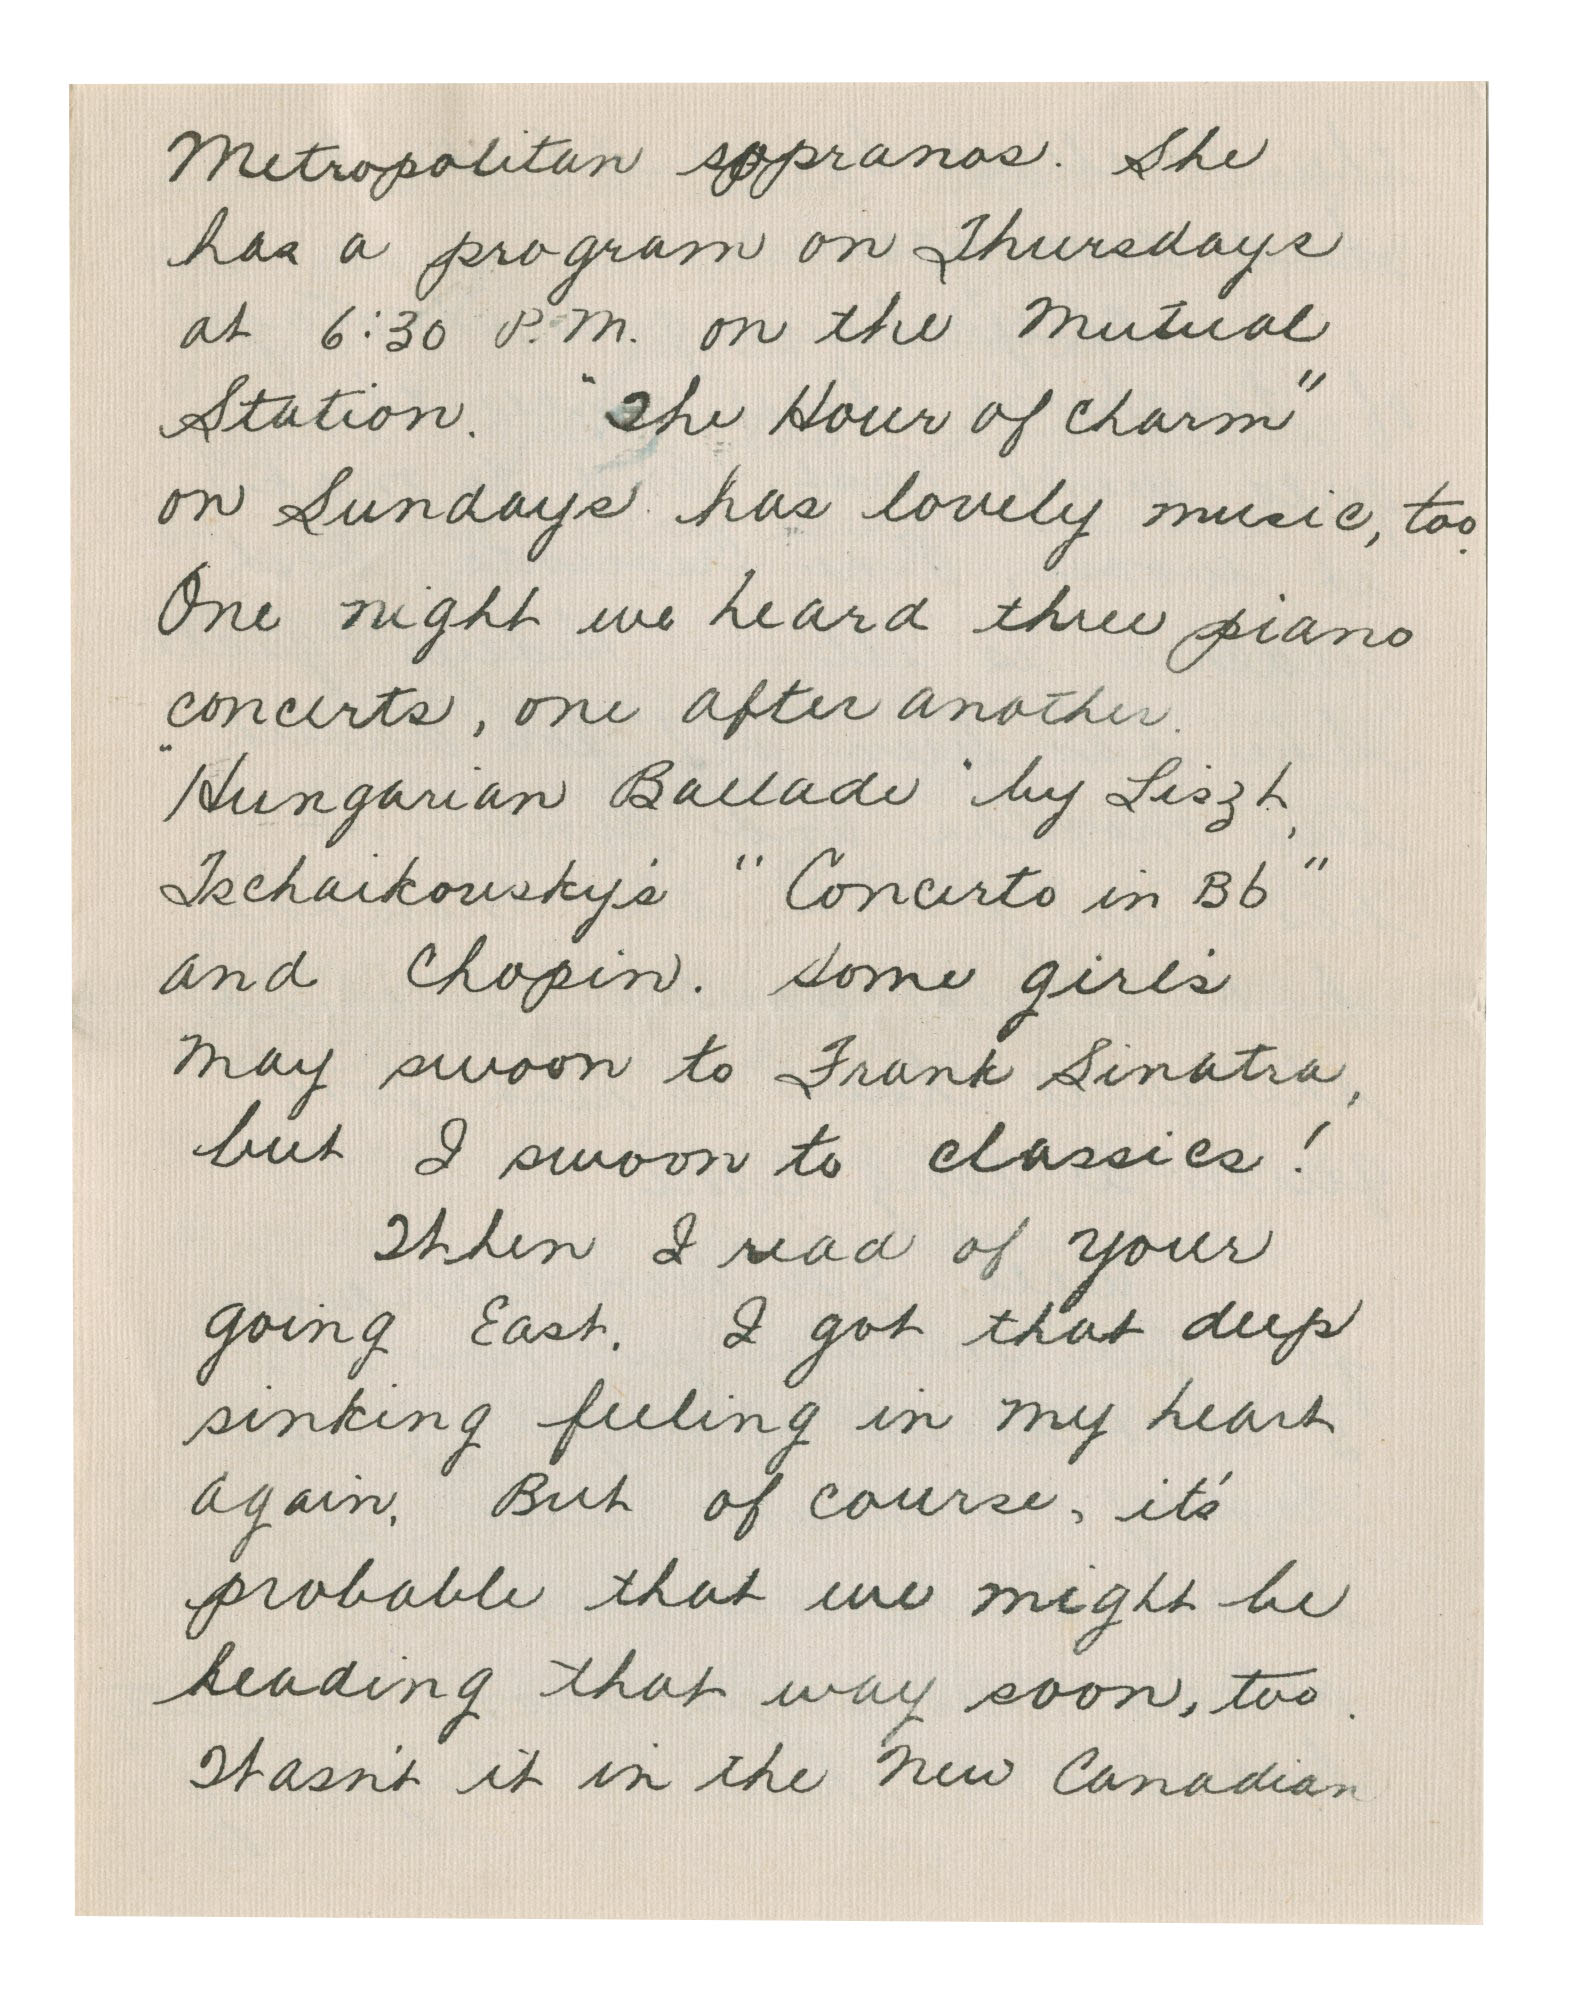 Metropolitan sopranos. She
has a program on Thursdays
at 6:30 P.M. on the Mutual
Station. "The Hour of Charm"
on Sundays has lovely music, too.
One night we heard three piano
concerts, one after another.
"Hungarian Ballade" by Liszt,
Tschaikowsky's "Concerto in Bb"
and Chopin. Some girls
may swoon to Frank Sinatra,
but I swoon to classics!
When I read of your
going East, I got that deep
sinking feeling in my heart
again. But of course, it's
probable that we might be
heading that way soon, too.
Wasn't it in the New Canadian